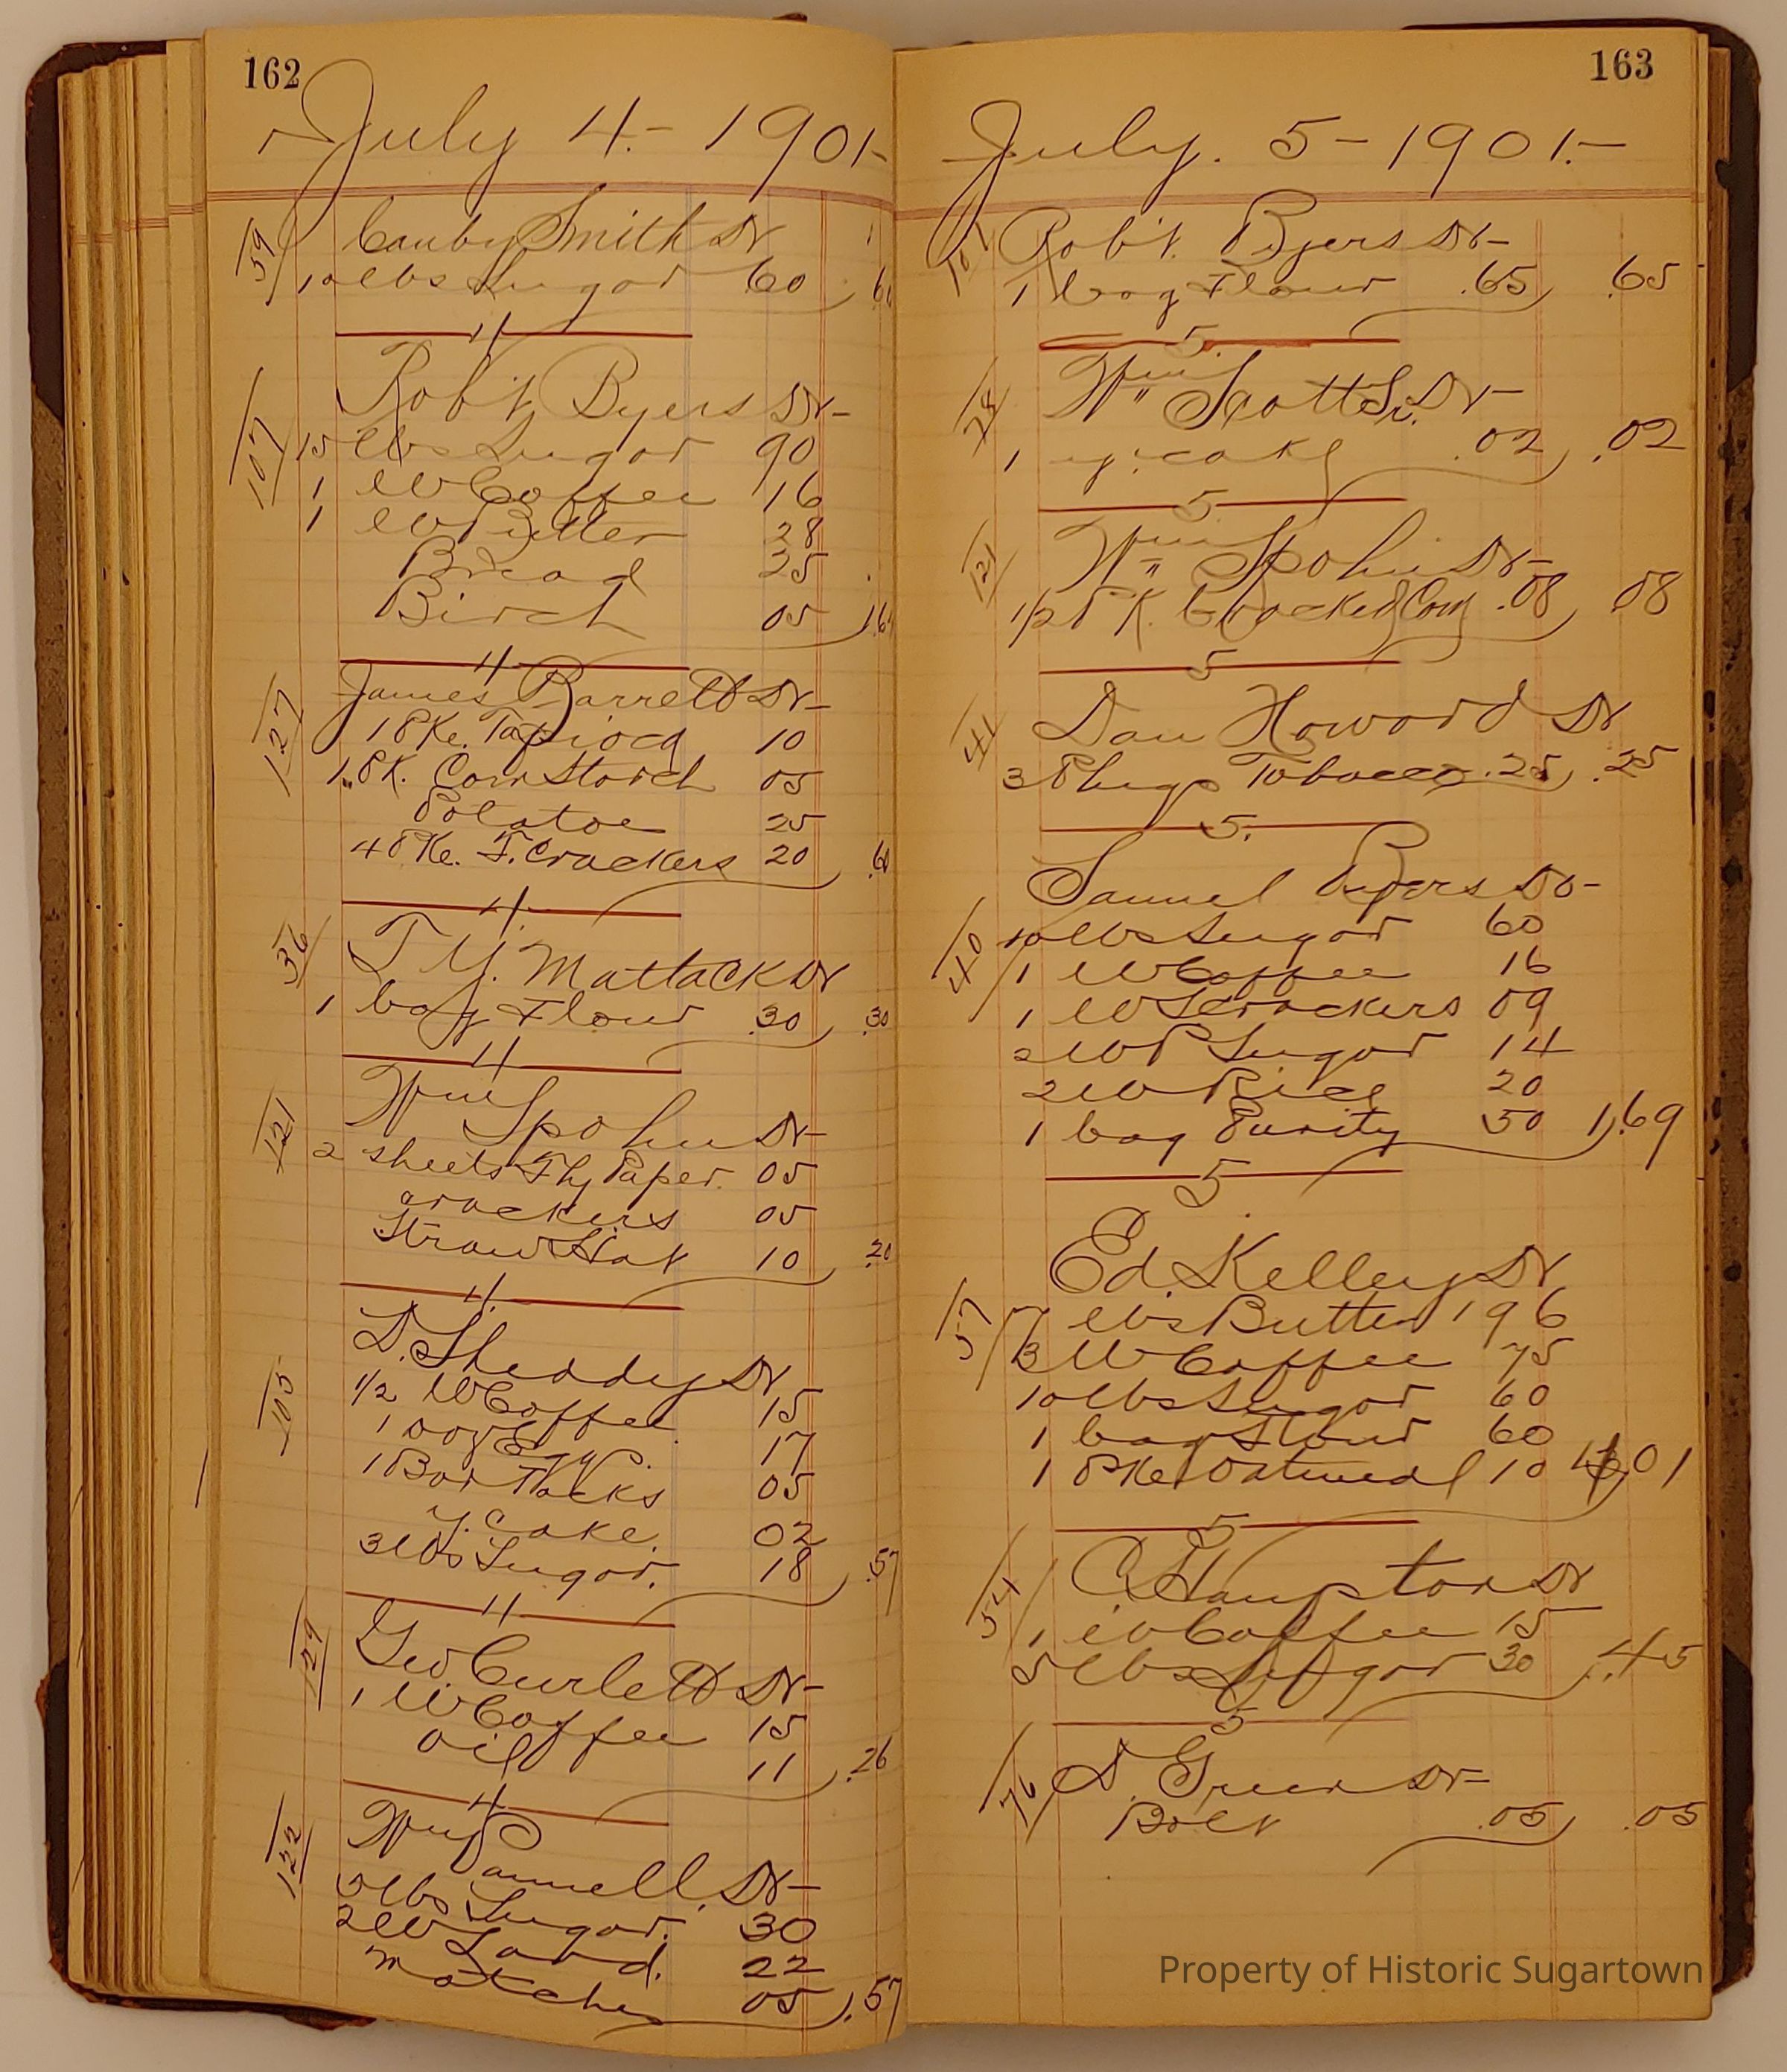 162
July 4.- 1901-
59
Canby Smith Dr
10 lbs Sugar 60 60
4
107
Rob't Byers Dr-
15 lbs Sugar 90
1 lb Coffee 16
1 lb Butter 28
Bread 25
Birch 05 1.64
4
127
James Barrett Dr-
1 PKe. Tapioca 10
1 " PK. Corn Starch 05
Potatoe 25
4 PKe. F. Crackers 20 .60
4
36
T. Y. Mattack Dr
1 bag Flour .30 .30
4
121
Wm Spohn Dr-
2 sheets Fly Paper. 05
crackers 05
Straw Hat 10 .20
4
105
D. Sheddy Dr
1/2 lb Coffee 15
1 doz Eggs. 17
1 Box Tacks 05
y. Cake. 02
3 lbs Sugar. 18 .57
4
129
Geo. Curlett Dr-
1 lb Coffee 15
Oil 11 .26
4
122
Wm Pannell. Dr-
5 lbs Sugar. 30
2 lb Lard. 22
matches 05 .57
163
July. 5-1901.-
107
Rob't. Byers Dr-
1 bag Flour .65 .65
5.
28
Wm Scott Sr. Dr-
1 y. cake .02 .02
5
121
Wm Spohn Dr-
1/2 PK. Cracked Corn .08 08
5
41
Dan Howard Dr
3 Plugs Tobacco .25 .25
5.
Samuel Byers Dr-
40
10 lbs Sugar 60
1 lb Coffee 16
1 lb S Crackers 09
2 lb P Sugar 14
2 lb Rice 20
1 bag Purity 50 1.69
5
Ed. Kelley Dr
57
7 lbs Butter 196
3 lb Coffee 75
10 lbs Sugar 60
1 bag Flour 60
1 PKe Oatmeal 10 4.01
5
54
C. Hampton Dr
1 lb Coffee 15
5 lbs Sugar 30 .45
5
76
S. Green Dr-
Bolt .05 .05
Property of Historic Sugartown